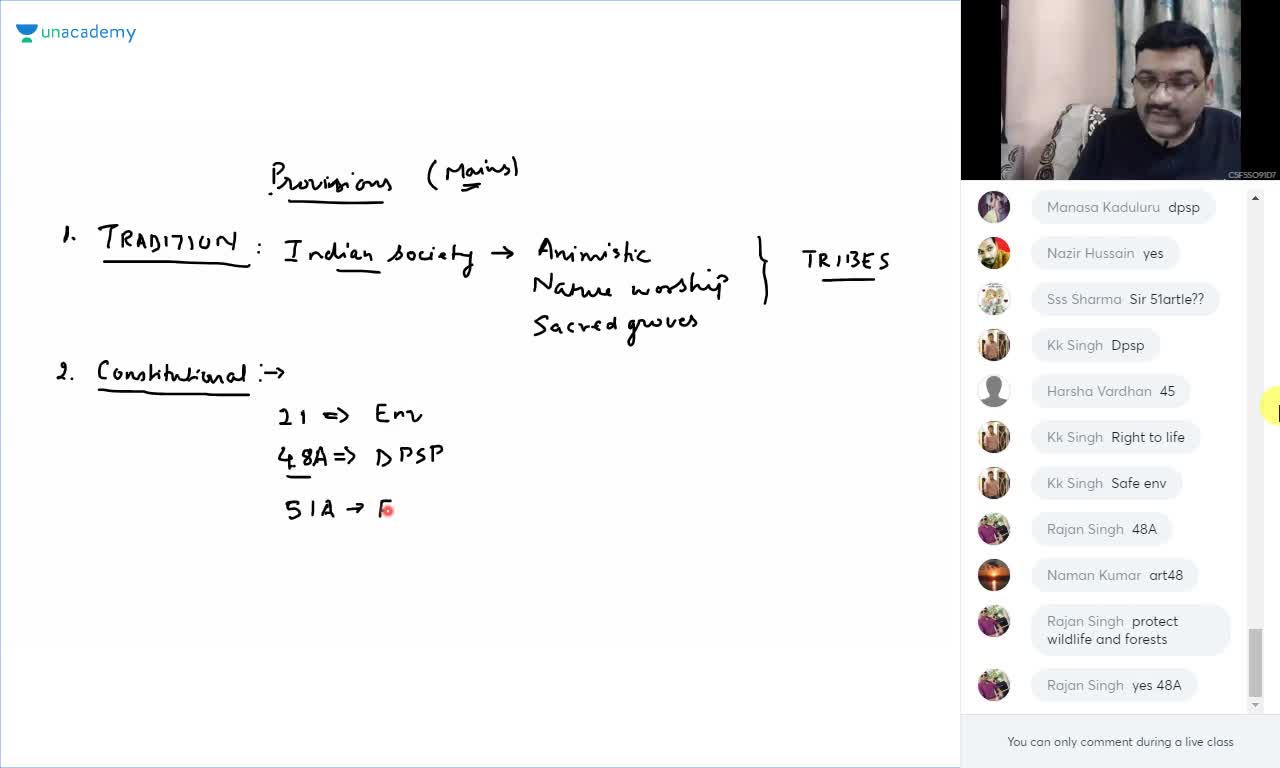 unacademy
Provisions (Mains)
1. TRADITION : Indian society → Animistic
Nature worship
Sacred groves
TRIBES
2. Constitutional :→
21 => Env
48A => DPSP
51A → F
CSFSSO91D7
Manasa Kaduluru dpsp
Nazir Hussain yes
Sss Sharma Sir 51artle??
Kk Singh Dpsp
Harsha Vardhan 45
Kk Singh Right to life
Kk Singh Safe env
Rajan Singh 48A
Naman Kumar art48
Rajan Singh protect
wildlife and forests
Rajan Singh yes 48A
You can only comment during a live class